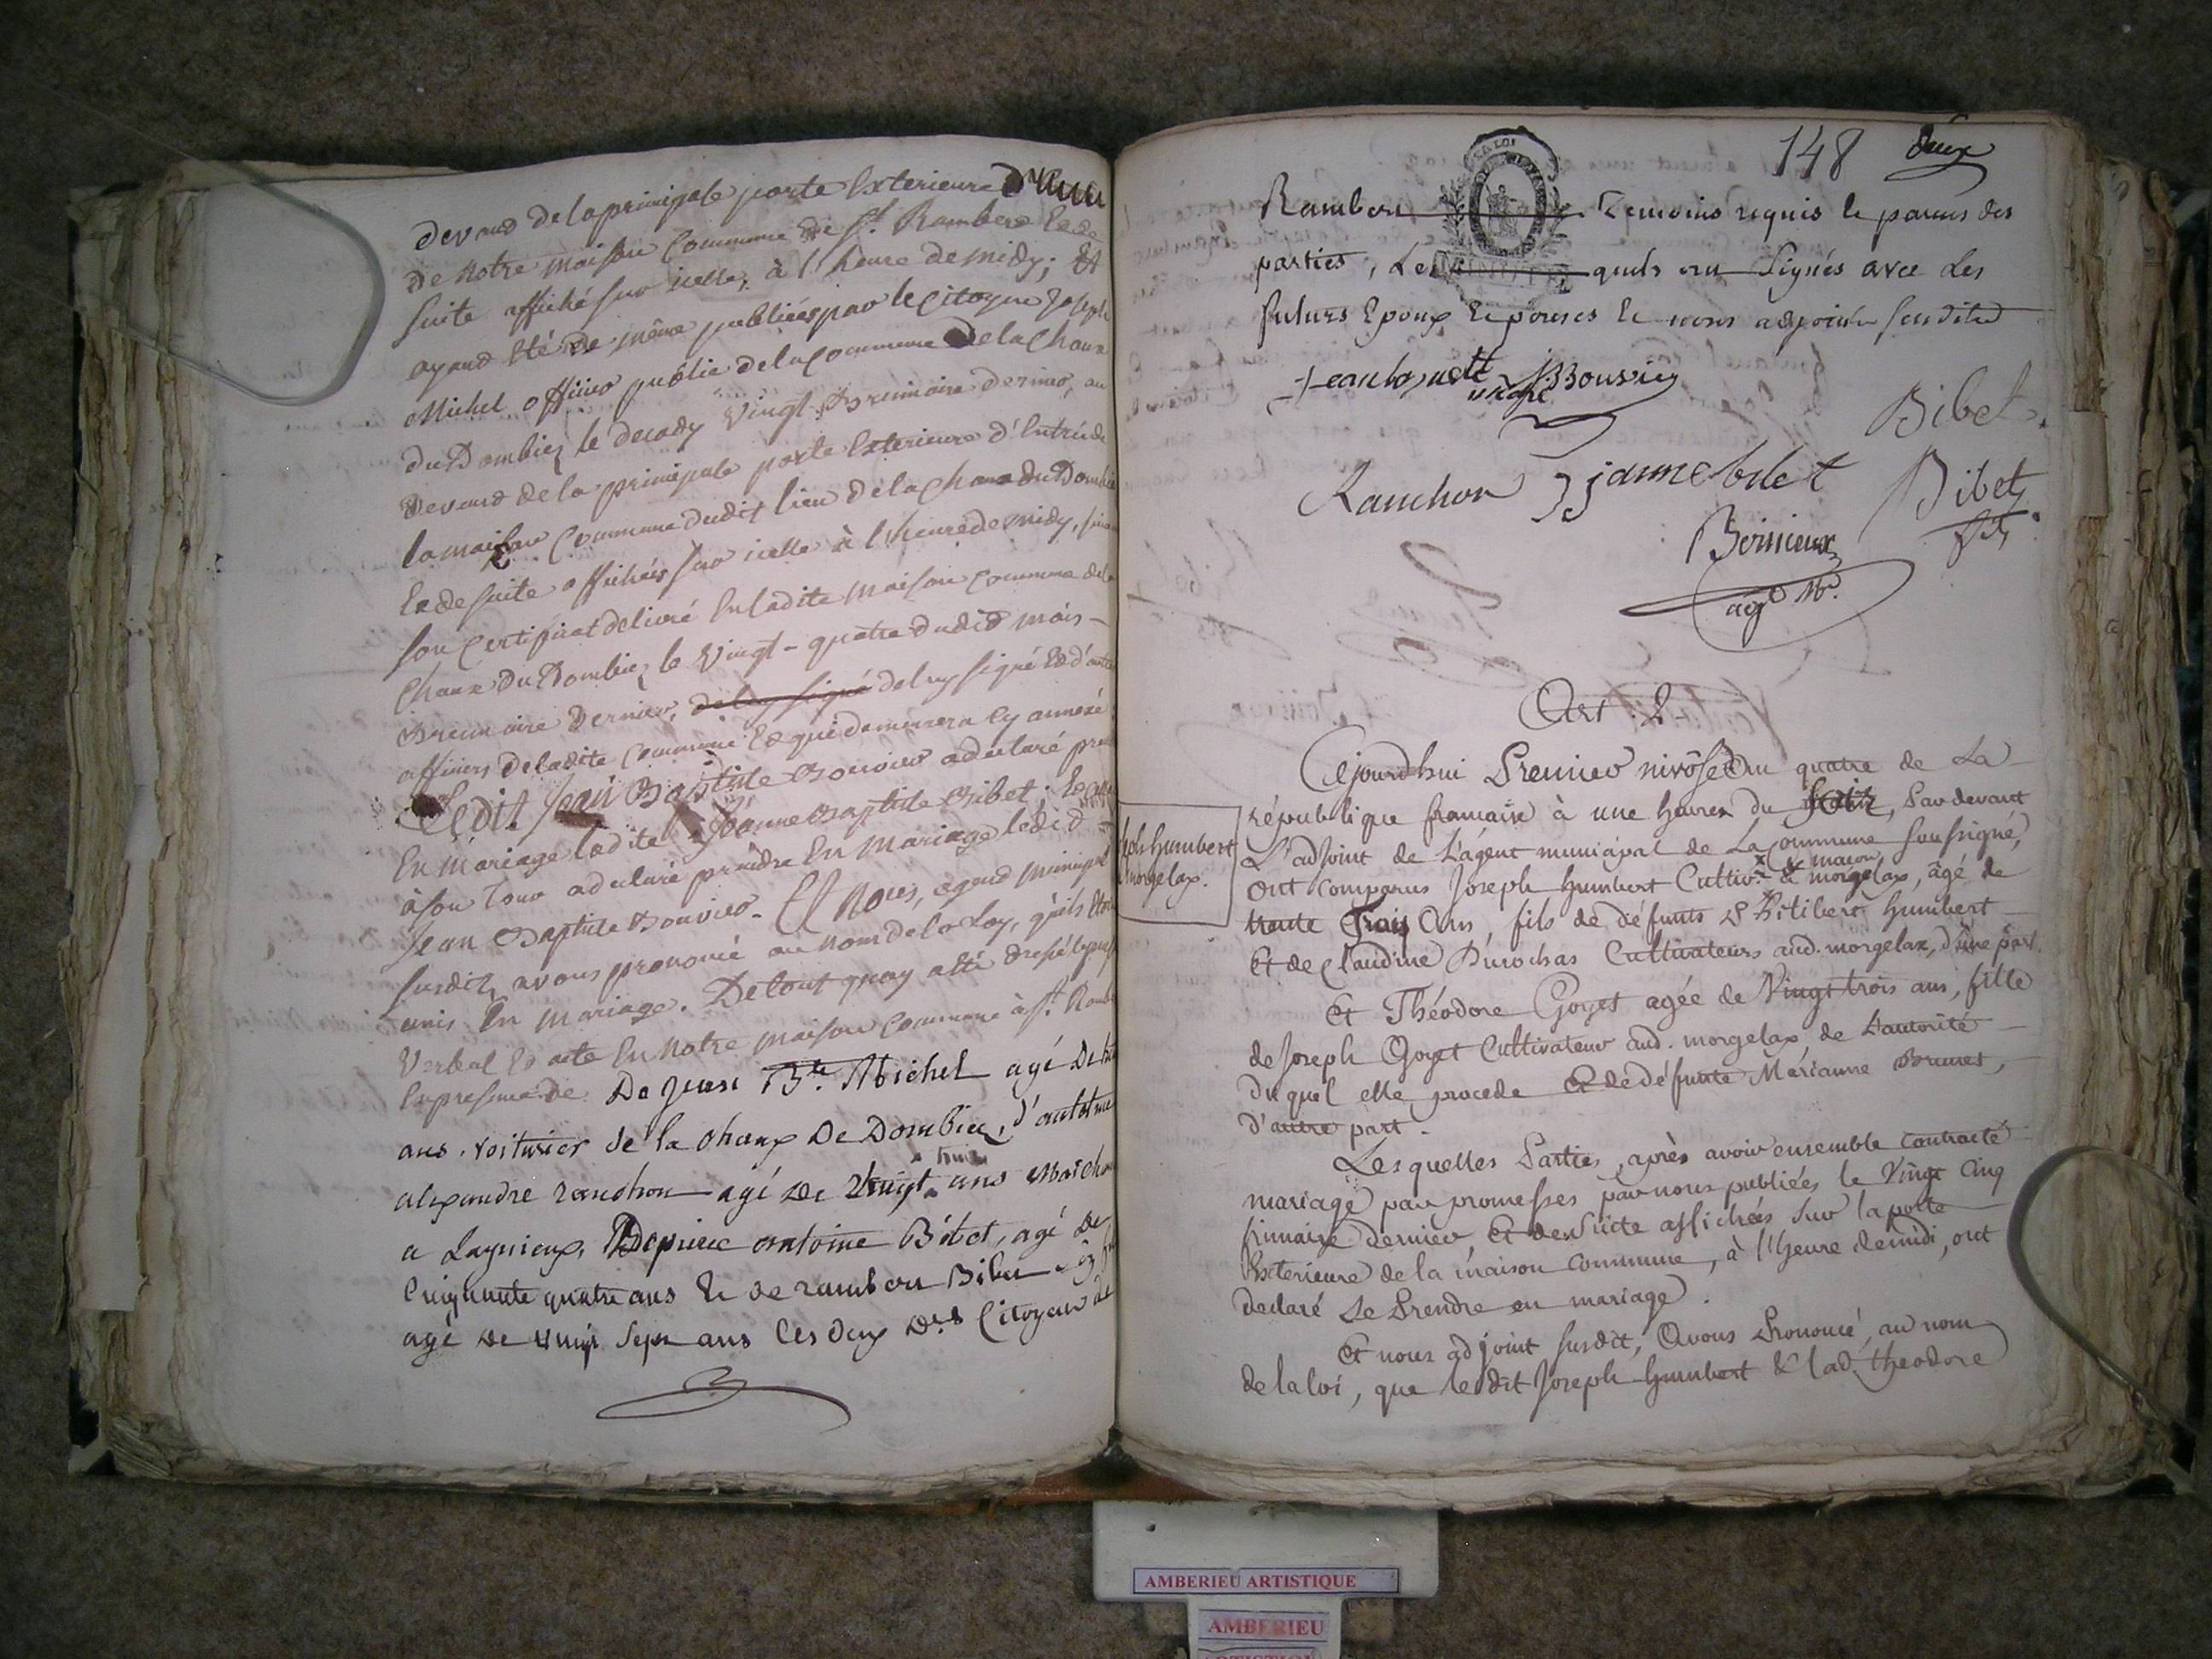 devand de la principale porte Exterieure d'Entrée
de notre maison Commune de St. Rambert Et de
suite affiché sur icelle, à l'heure de midy; Et
ayand été de même publiées par le Citoyen Joseph
Michel officier public de la Commune de la Chaux
du Dombief le decady vingt Brumaire dernier, au
devand de la principale porte Exterieure d'Entrée de
la maison Commune dudit lieu de la Chaux du Dombief
Et de suite affichées sur icelle à l'heure de midy, suivant
son Certificat delivré En ladite maison Commune de la
Chaux du Dombief le vingt-quatre dudit mois
Brumaire dernier, de luy signé de luy signé Et d'autres
officiers de ladite Commune Et qui demeurera cy annexé
Ledit Jean Baptiste Bouvier a declaré prendre
En mariage ladite Jeanne Baptiste Bibet. Et
à son tour a declaré prendre En mariage ledit
Jean Baptiste Bouvier. Et Nous, agend municipal
susdit, avons prononcé au nom de la Loy, qu'ils Etoient
unis En mariage. De tout quoy a été dressé le present
Verbal Et acte En notre maison Commune à St. Rambert
En presence de De Jean Bte. Michel agé de
ans, voiturier de la chaux De Dombief, d'
alexandre ranchon agé de vingt ans
a Lagnieux, De pierre antoine Bibet, agé de
Cinquante quatre ans Et de rambert Bibet
agé de vingt Sept ans les deux Citoyens de
148 deux
Rambert Temoins requis le parens des
parties, Lesquels ont Signés avec Les
futurs Epoux Et nous adjoint susdited
J B Bouvier
Bibet
Ranchon janne bibet Bibet
fs
Bernieux
agt. m.
Art. 2.
Cejourd'hui Premier nivôse an quatre de La
république francaise à une heure du soir, Par devant
Joseph Humbert
morgelax.
L'adjoint de L'agent municipal de La Commune soussigné,
maçon
ont comparus Joseph humbert Cultivr. à morgelax, âgé de
trente trois ans, fils de défunts Philibert humbert
Et de Claudine Durochas Cultivateurs aud. morgelax, d'une part.
Et Théodore Goyet agée de Vingt trois ans, fille
de Joseph Goyet Cultivateur aud. morgelax, de L'autorité
duquel elle procede Et de défunte Mérianne Brunet,
d'autre part.
Lesquelles Parties, après avoir ensemble contracté
mariage par promesses par nous publiées le Vingt Cinq
frimaire dernier, Et de suite affichées sur la porte
Exterieure de la maison commune, à l'heure de midi, ont
declaré se Prendre en mariage.
Et nous adjoint susdit, avons Prononcé, au nom
de la loi, que ledit Joseph humbert & lad. theodore
AMBERIEU ARTISTIQUE
AMBERIEU
ARTISTIQUE